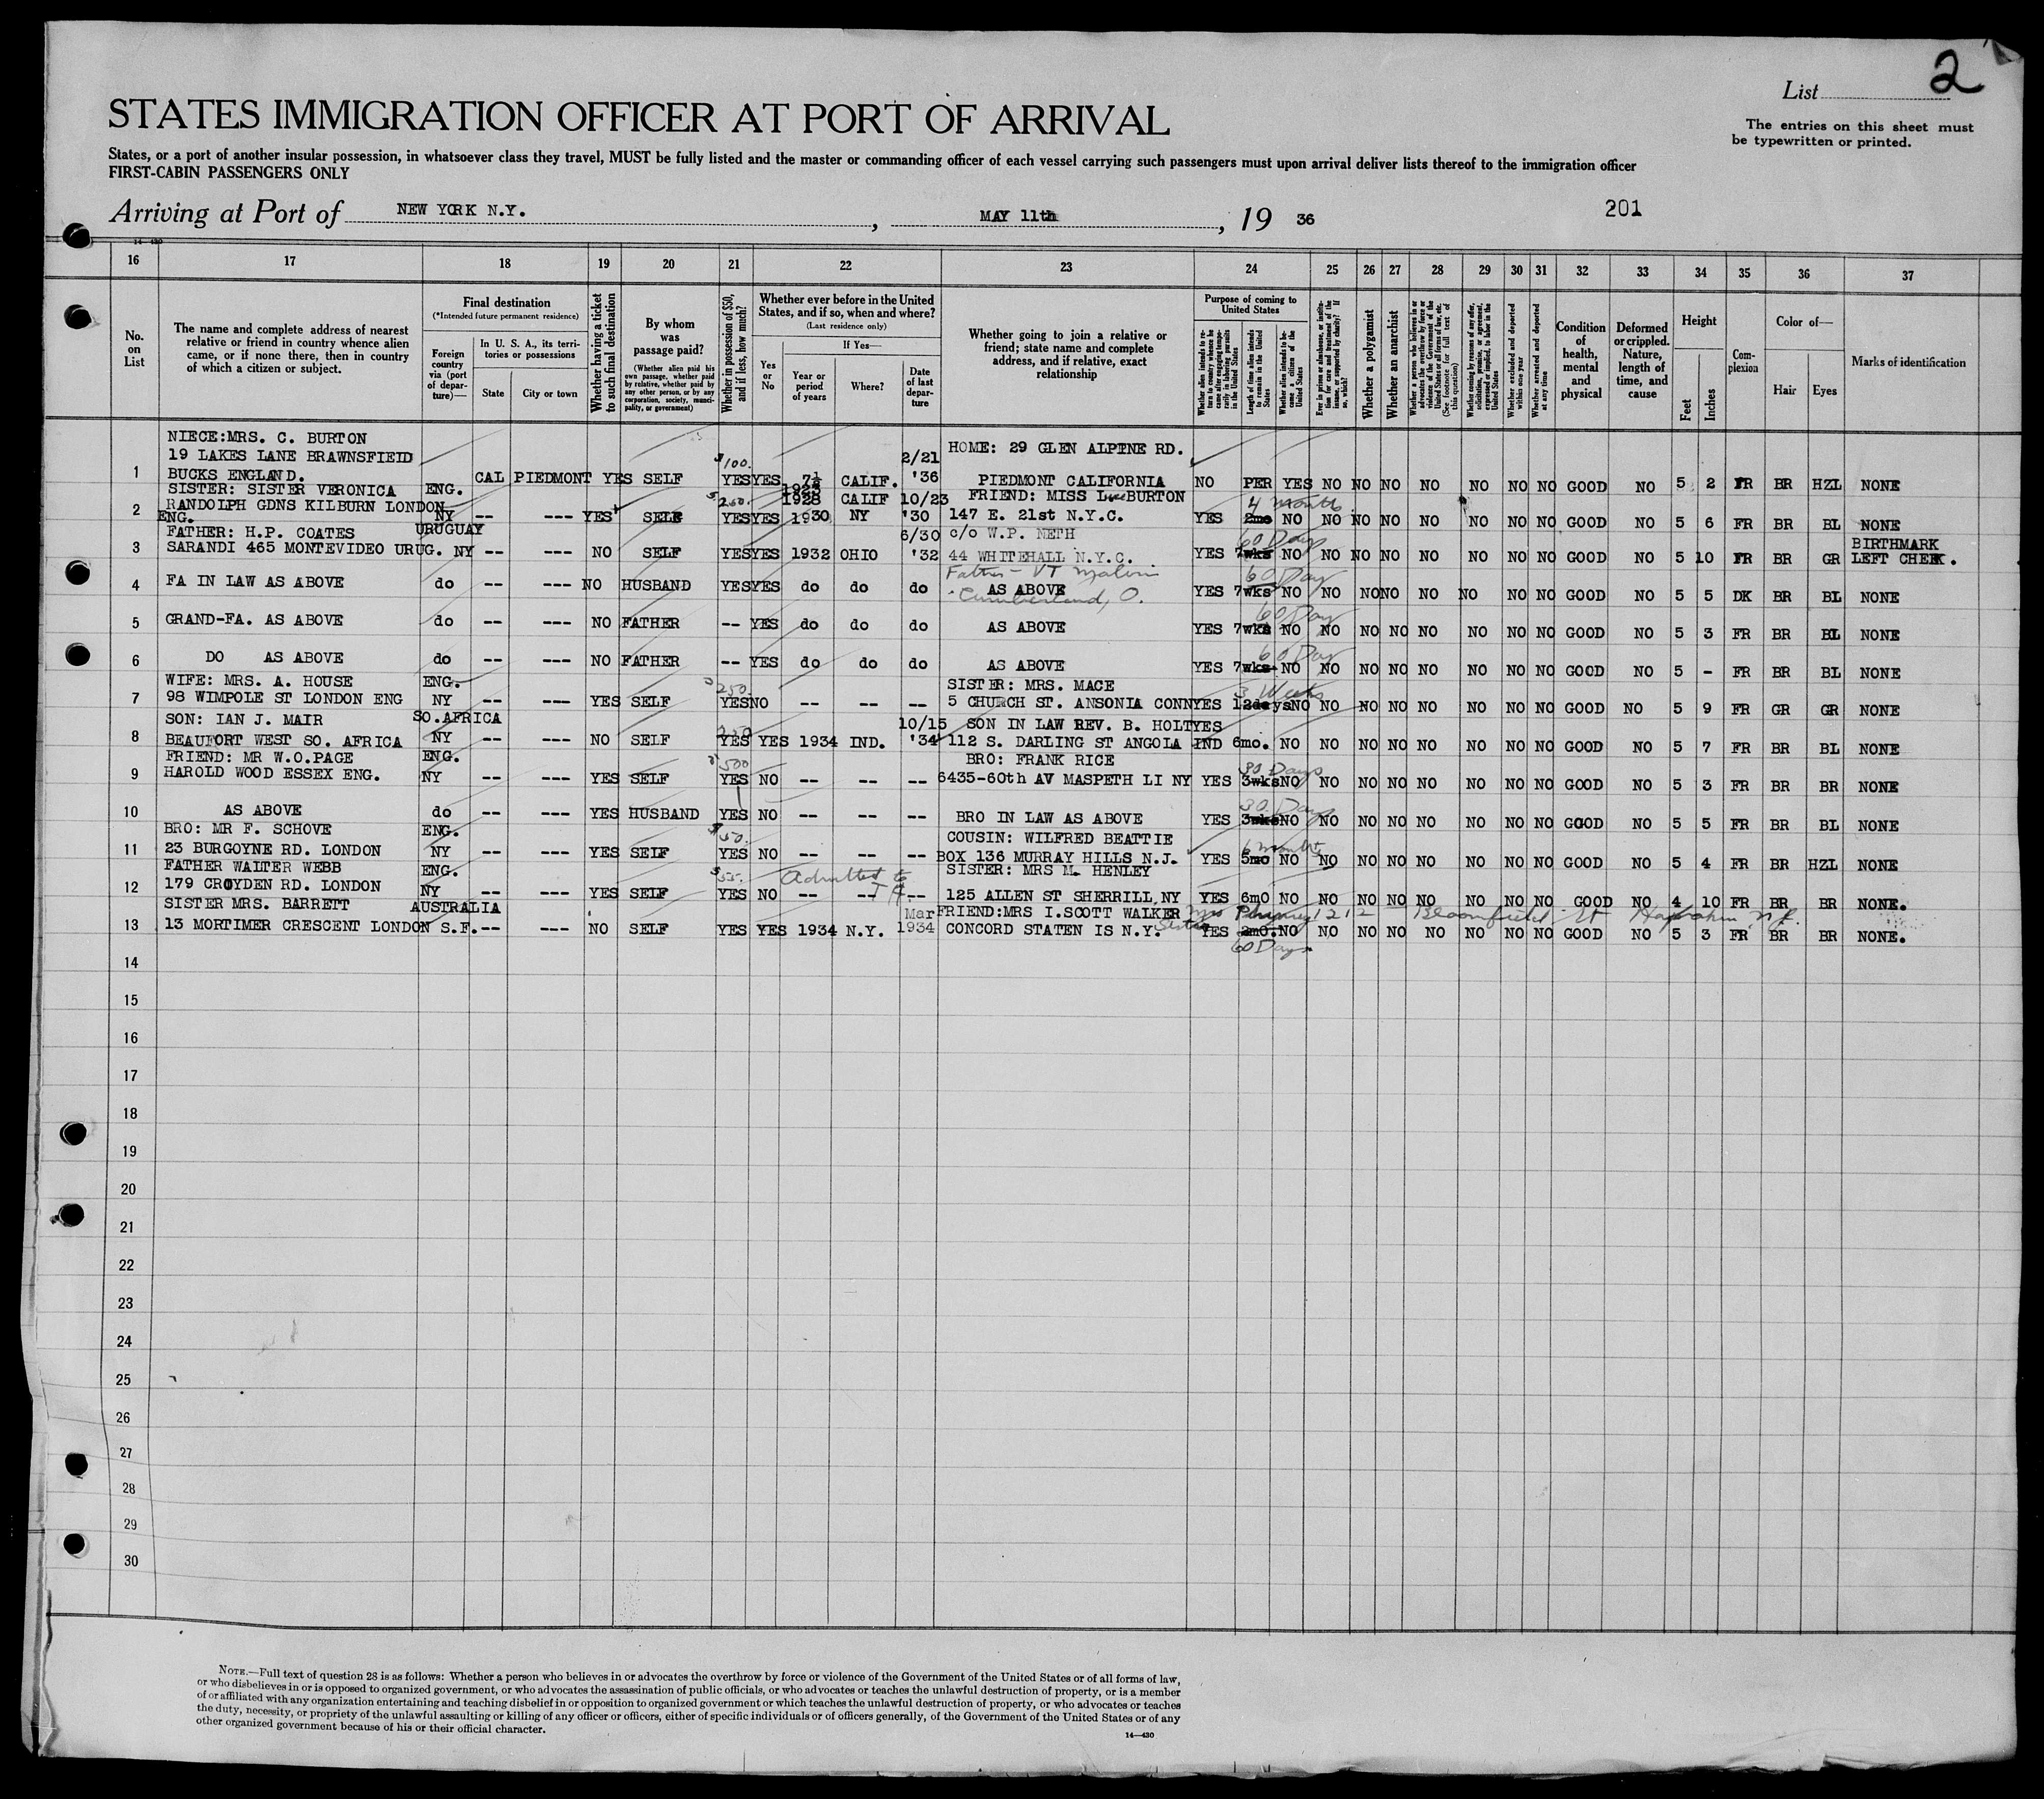 List 2
The entries on this sheet must
be typewritten or printed.
STATES IMMIGRATION OFFICER AT PORT OF ARRIVAL
States, or a port of another insular possession, in whatsoever class they travel, MUST be fully listed and the master or commanding officer of each vessel carrying such passengers must upon arrival deliver lists thereof to the immigration officer
FIRST-CABIN PASSENGERS ONLY
Arriving at Port of NEW YORK N.Y. , MAY 11th , 19 36 201
14-430
16 17 18 19 20 21 22 23 24 25 26 27 28 29 30 31 32 33 34 35 36 37
No. on List
The name and complete address of nearest relative or friend in country whence alien came, or if none there, then in country of which a citizen or subject.
Final destination
(*Intended future permanent residence)
Foreign country via (port of departure)—
In U. S. A., its territories or possessions
State City or town
Whether having a ticket to such final destination
By whom was passage paid?
(Whether alien paid his own passage, whether paid by relative, whether paid by any other person, or by any corporation, society, municipality, or government)
Whether in possession of $50, and if less, how much?
Whether ever before in the United States, and if so, when and where?
(Last residence only)
Yes or No
If Yes—
Year or period of years
Where?
Date of last departure
Whether going to join a relative or friend; state name and complete address, and if relative, exact relationship
Purpose of coming to United States
Whether alien intends to return to country whence he came after engaging temporarily in laboring pursuits in the United States
Length of time alien intends to remain in the United States
Whether alien intends to become a citizen of the United States
Ever in prison or almshouse, or institution for care and treatment of the insane, or supported by charity? If so, which?
Whether a polygamist
Whether an anarchist
Whether a person who believes in or advocates the overthrow by force or violence of the Government of the United States or all forms of law, etc. (See footnote for full text of this question)
Whether coming by reasons of any offer, solicitation, promise, or agreement, expressed or implied, to labor in the United States
Whether excluded and deported within one year
Whether arrested and deported at any time
Condition of health, mental and physical
Deformed or crippled. Nature, length of time, and cause
Height
Feet Inches
Complexion
Color of—
Hair Eyes
Marks of identification
NIECE:MRS. C. BURTON
19 LAKES LANE BRAWNSFIEID 2/21 HOME: 29 GLEN ALPINE RD.
1 BUCKS ENGLAND. CAL PIEDMONT YES SELF $100. YES YES 7½ CALIF. '36 PIEDMONT CALIFORNIA NO PER YES NO NO NO NO NO NO NO GOOD NO 5 2 FR BR HZL NONE
SISTER: SISTER VERONICA ENG. 1928 CALIF 10/23 FRIEND: MISS BURTON
2 RANDOLPH GDNS KILBURN LONDON NY -- --- YES SELF YES YES 1930 NY '30 147 E. 21st N.Y.C. YES 2mo 4 months NO NO NO NO NO NO NO NO GOOD NO 5 6 FR BR BL NONE
ENG.
FATHER: H.P. COATES URUGUAY 6/30 c/o W.P. NETH
3 SARANDI 465 MONTEVIDEO URUG. NY -- --- NO SELF YES YES 1932 OHIO '32 44 WHITEHALL N.Y.C. YES 7wks 60 Days NO NO NO NO NO NO NO NO GOOD NO 5 10 FR BR GR BIRTHMARK LEFT CHEEK.
Father - VT
4 FA IN LAW AS ABOVE do -- --- NO HUSBAND YES YES do do do AS ABOVE Cumberland, O. YES 7wks 60 Day NO NO NO NO NO NO NO NO GOOD NO 5 5 DK BR BL NONE
5 GRAND-FA. AS ABOVE do -- --- NO FATHER -- YES do do do AS ABOVE YES 7wks 60 Day NO NO NO NO NO NO NO NO GOOD NO 5 3 FR BR BL NONE
6 DO AS ABOVE do -- --- NO FATHER -- YES do do do AS ABOVE YES 7wks 60 Day NO NO NO NO NO NO NO NO GOOD NO 5 - FR BR BL NONE
WIFE: MRS. A. HOUSE ENG. 250. SISTER: MRS. MACE
7 98 WIMPOLE ST LONDON ENG NY -- --- YES SELF YES NO -- -- -- 5 CHURCH ST. ANSONIA CONN YES 12days 3 Weeks NO NO NO NO NO NO NO NO GOOD NO 5 9 FR GR GR NONE
SON: IAN J. MAIR SO.AFRICA 10/15 SON IN LAW REV. B. HOLT YES
8 BEAUFORT WEST SO. AFRICA NY -- --- NO SELF YES YES 1934 IND. '34 112 S. DARLING ST ANGOLA IND 6mo. NO NO NO NO NO NO NO NO GOOD NO 5 7 FR BR BL NONE
FRIEND: MR W.O.PAGE ENG. 500 BRO: FRANK RICE
9 HAROLD WOOD ESSEX ENG. NY -- --- YES SELF YES NO -- -- -- 6435-60th AV MASPETH LI NY YES 3wks 30 Days NO NO NO NO NO NO NO NO GOOD NO 5 3 FR BR BR NONE
10 AS ABOVE do -- --- YES HUSBAND YES NO -- -- -- BRO IN LAW AS ABOVE YES 3wks 30 Days NO NO NO NO NO NO NO NO GOOD NO 5 5 FR BR BL NONE
BRO: MR F. SCHOVE ENG. $50. COUSIN: WILFRED BEATTIE
11 23 BURGOYNE RD. LONDON NY -- --- YES SELF YES NO -- -- -- BOX 136 MURRAY HILLS N.J. YES 5mo 6 months NO NO NO NO NO NO NO NO GOOD NO 5 4 FR BR HZL NONE
FATHER WALTER WEBB ENG. Admitted to SISTER: MRS M. HENLEY
12 179 CROYDEN RD. LONDON NY -- --- YES SELF YES NO -- -- -- 125 ALLEN ST SHERRILL, NY YES 6mO NO NO NO NO NO NO NO NO GOOD NO 4 10 FR BR BR NONE.
SISTER MRS. BARRETT AUSTRALIA Mar FRIEND:MRS I.SCOTT WALKER Mrs 1212 Bloomfield St
13 13 MORTIMER CRESCENT LONDON S.F. -- --- NO SELF YES YES 1934 N.Y. 1934 CONCORD STATEN IS N.Y. Sister YES 2mO. NO NO NO NO NO NO NO NO GOOD NO 5 3 FR BR BR NONE.
60 Days
14
15
16
17
18
19
20
21
22
23
24
25
26
27
28
29
30
NOTE.—Full text of question 28 is as follows: Whether a person who believes in or advocates the overthrow by force or violence of the Government of the United States or of all forms of law,
or who disbelieves in or is opposed to organized government, or who advocates the assassination of public officials, or who advocates or teaches the unlawful destruction of property, or is a member
of or affiliated with any organization entertaining and teaching disbelief in or opposition to organized government or which teaches the unlawful destruction of property, or who advocates or teaches
the duty, necessity, or propriety of the unlawful assaulting or killing of any officer or officers, either of specific individuals or of officers generally, of the Government of the United States or of any
other organized government because of his or their official character.
14—430